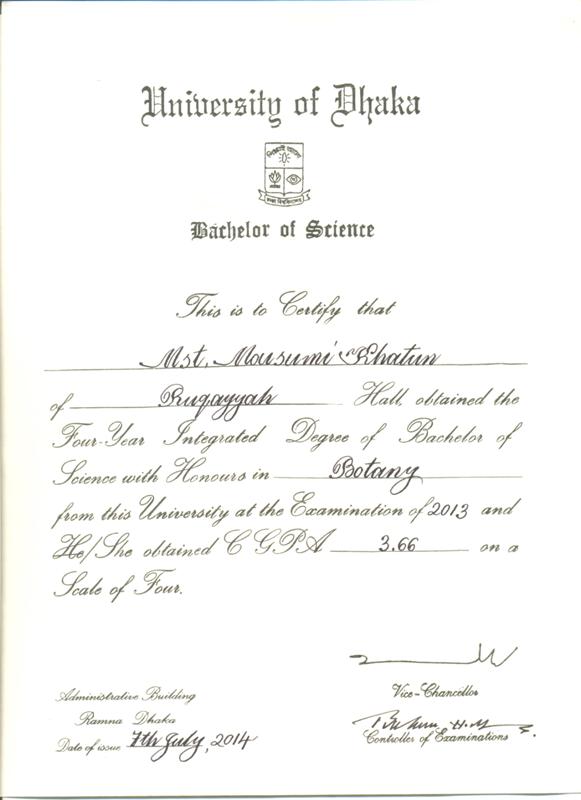 University of Dhaka
শিক্ষাই আলো
ঢাকা বিশ্ববিদ্যালয়
Bachelor of Science
This is to Certify that
Mst. Mousumi Khatun
of Ruqayyah Hall, obtained the
Four-Year Integrated Degree of Bachelor of
Science with Honours in Botany
from this University at the Examination of 2013 and
He/She obtained C G P A 3.66 on a
Scale of Four.
Vice-Chancellor
Administrative Building
Ramna Dhaka
Date of issue 7th July, 2014
Controller of Examinations